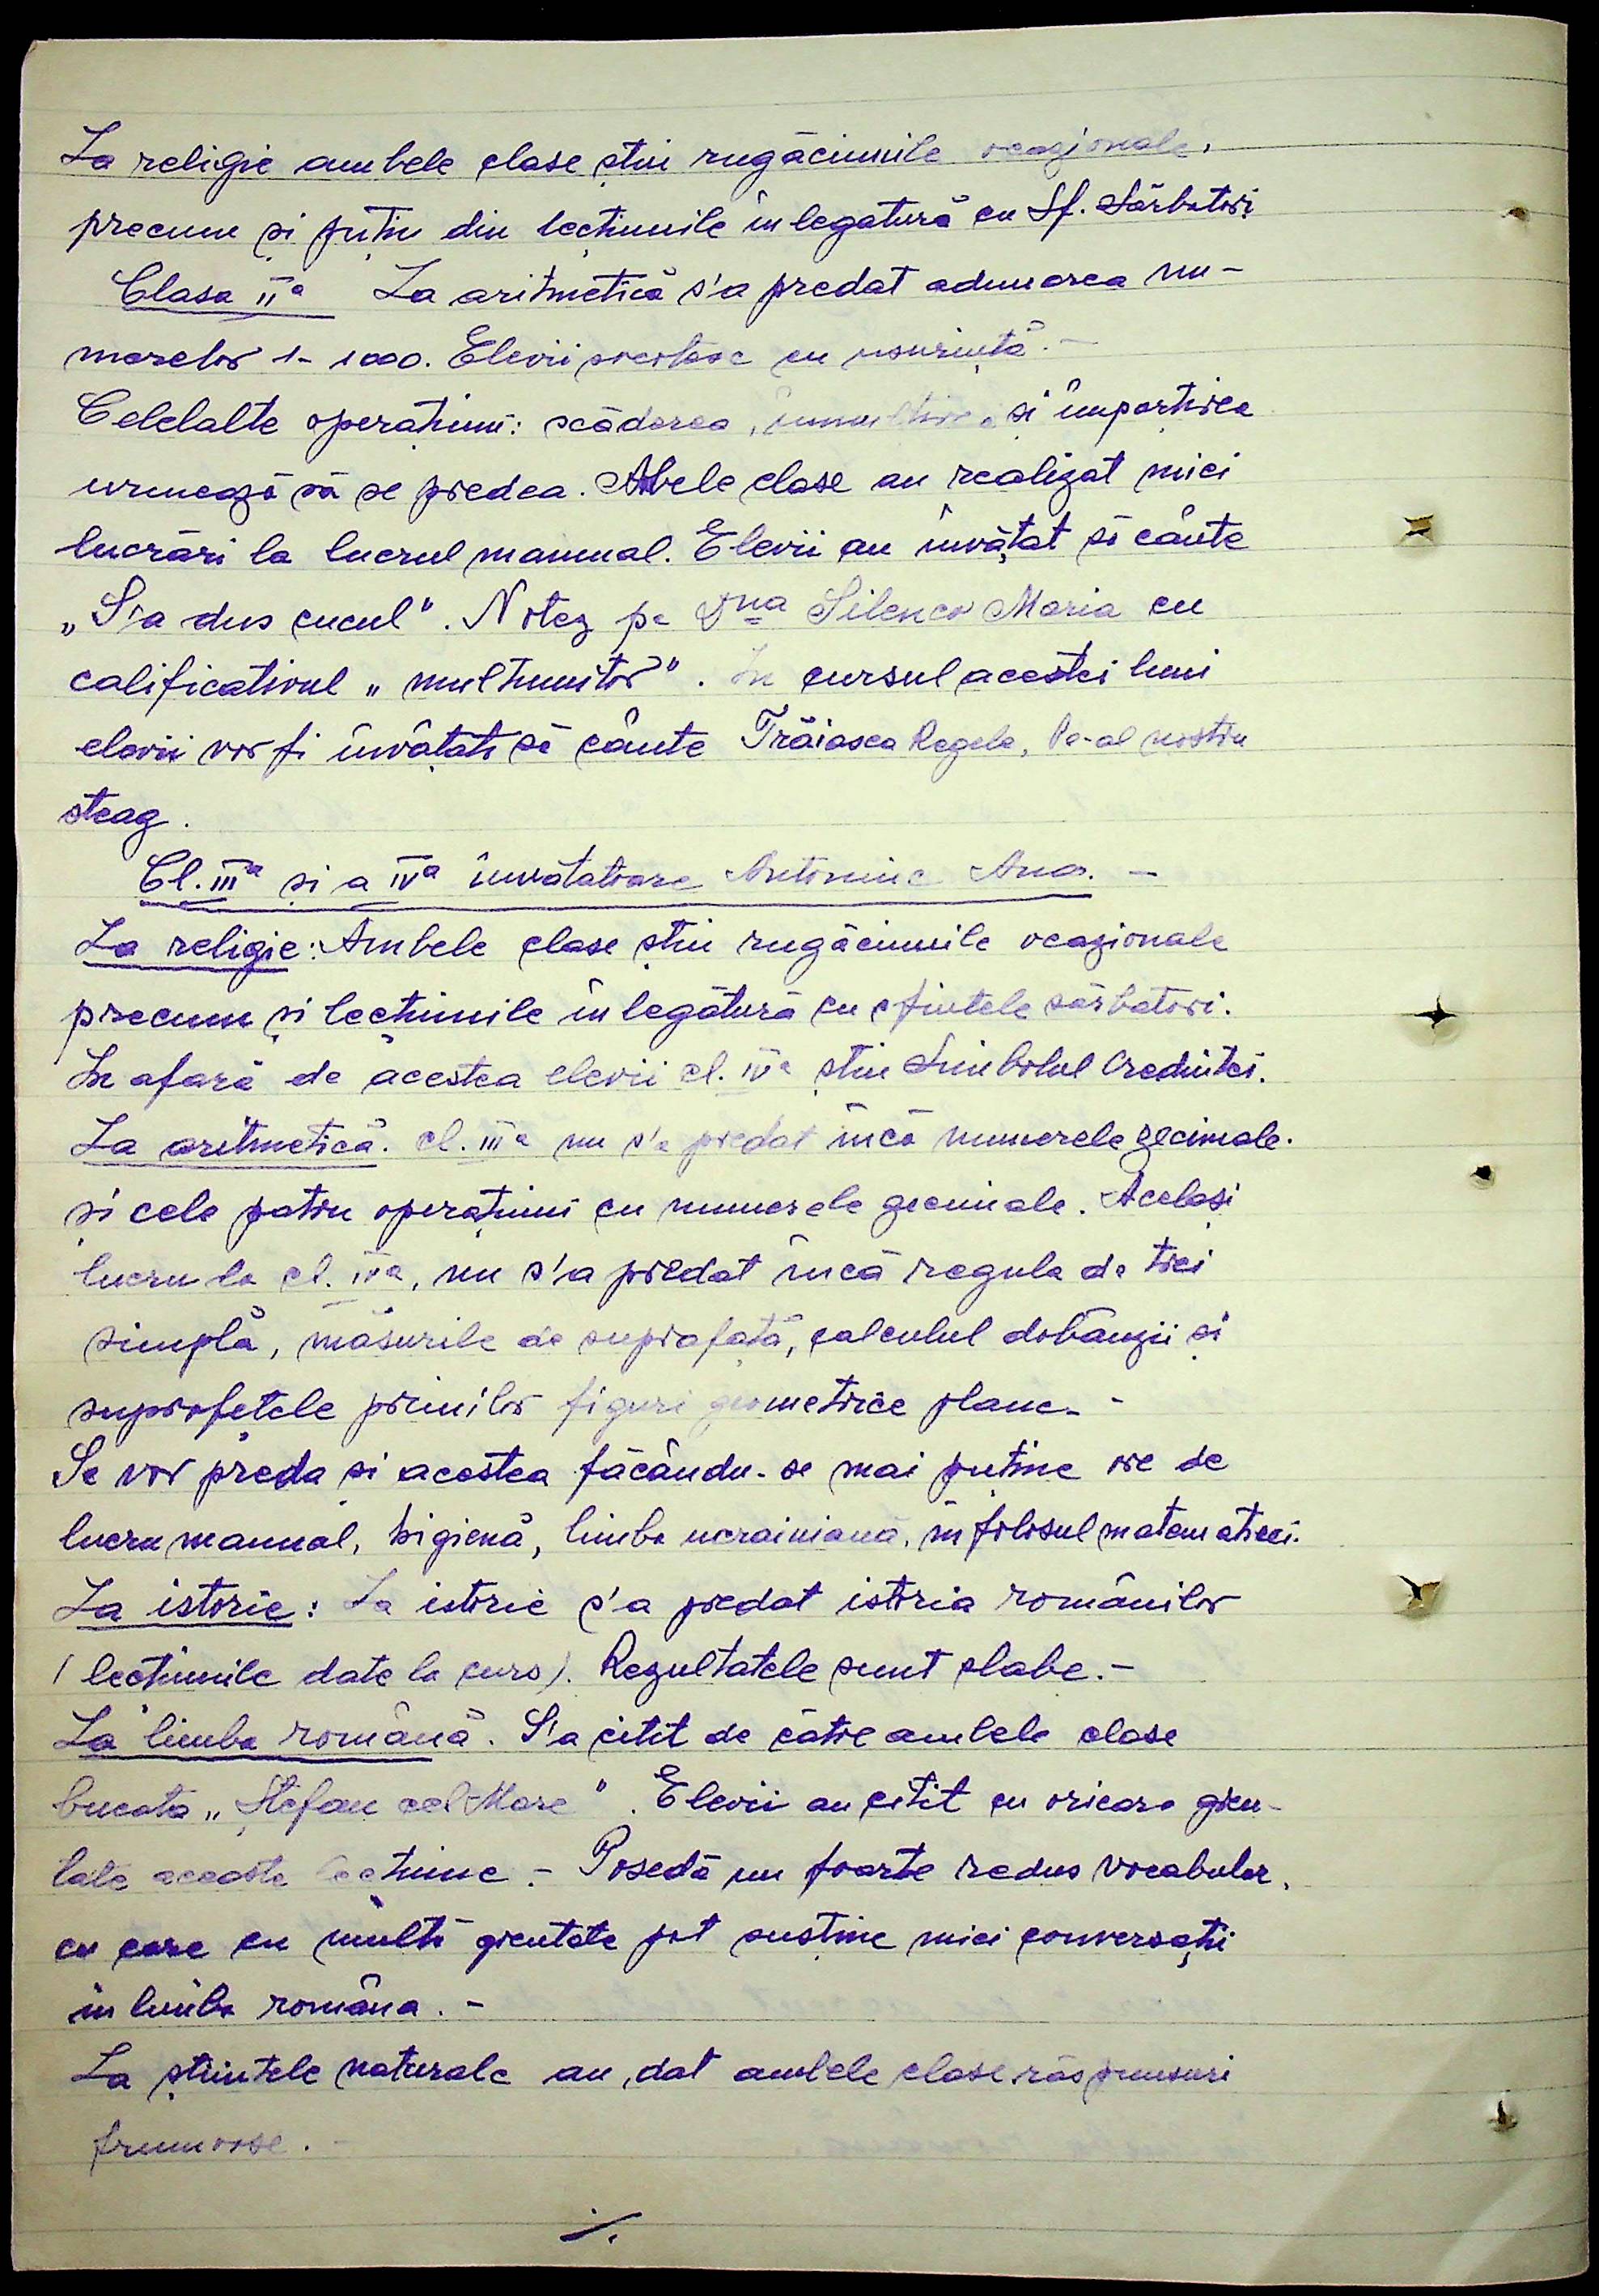 La religie ambele clase știu rugăciunile ocazionale,
precum și puțin din lecțiunile în legatură cu Sf. Sărbatori
Clasa IIa La aritmetică s'a predat adunarea nu-
merelor 1- 1000. Elevii socotesc cu ușurință.-
Celelalte operațiuni: scăderea, înmulțirea și împarțirea
urmează să se predea. Abele clase au realizat mici
lucrări la lucrul manual. Elevii au învățat să cânte
„S'a dus cucul". Notez pe Dna Silenco Maria cu
calificativul „mulțumitor". În cursul acestei luni
elevii vor fi învățați să cânte Trăiasca Regele, Pe-al nostru
steag.
Cl. IIIa și a IVa învatatoare Antoniuc Ana. -
La religie: Ambele clase știu rugăciunile ocazionale
precum și lecțiunile în legătură cu sfintele sărbatori.
În afară de acestea elevii cl. IVa știu Simbolul Credintei.
La aritmetică. cl. IIIa nu s'a predat încă numerele zecimale.
și cele patru operațiuni cu numerele zecimale. Același
lucru la cl. IVa, nu s'a predat încă regula de trei
simplă, măsurile de suprafață, calculul dobânzii și
suprafețele primilor figuri geometrice plane.-
Se vor preda și acestea făcându-se mai puține ore de
lucru manual, higienă, limba ucrainiană, în folosul matematicei.
La istorie: La istorie s'a predat istoria românilor
(lecțiunile date la curs). Rezultatele sunt slabe.-
La limba română. S'a citit de către ambele clase
bucata „Ștefan cel Mare". Elevii au citit cu oricare greu-
tate aceasta lecțiune.- Posedă un foarte redus vocabular,
cu care cu multă greutate pot susține mici conversații
în limba româna.-
La științele naturale au dat ambele clase răspunsuri
frumoase.-
./.